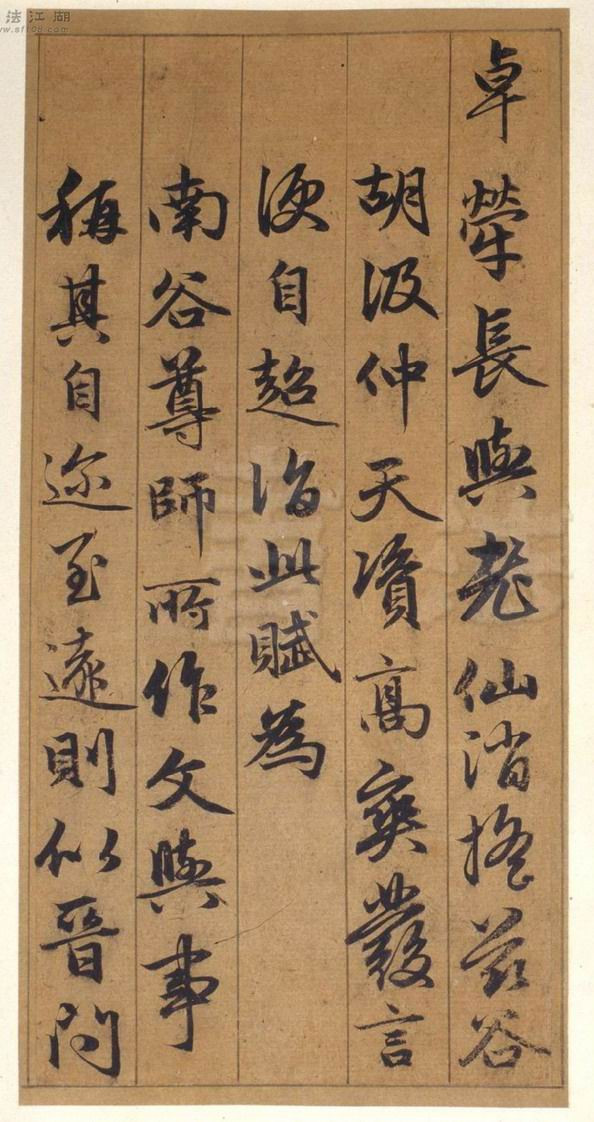 法江湖
www.sf108.com
卓犖長與老仙消搖茲谷
胡汲仲天資高爽發言
便自超詣此賦為
南谷尊師所作文與事
稱其自迩至遠則似晉問